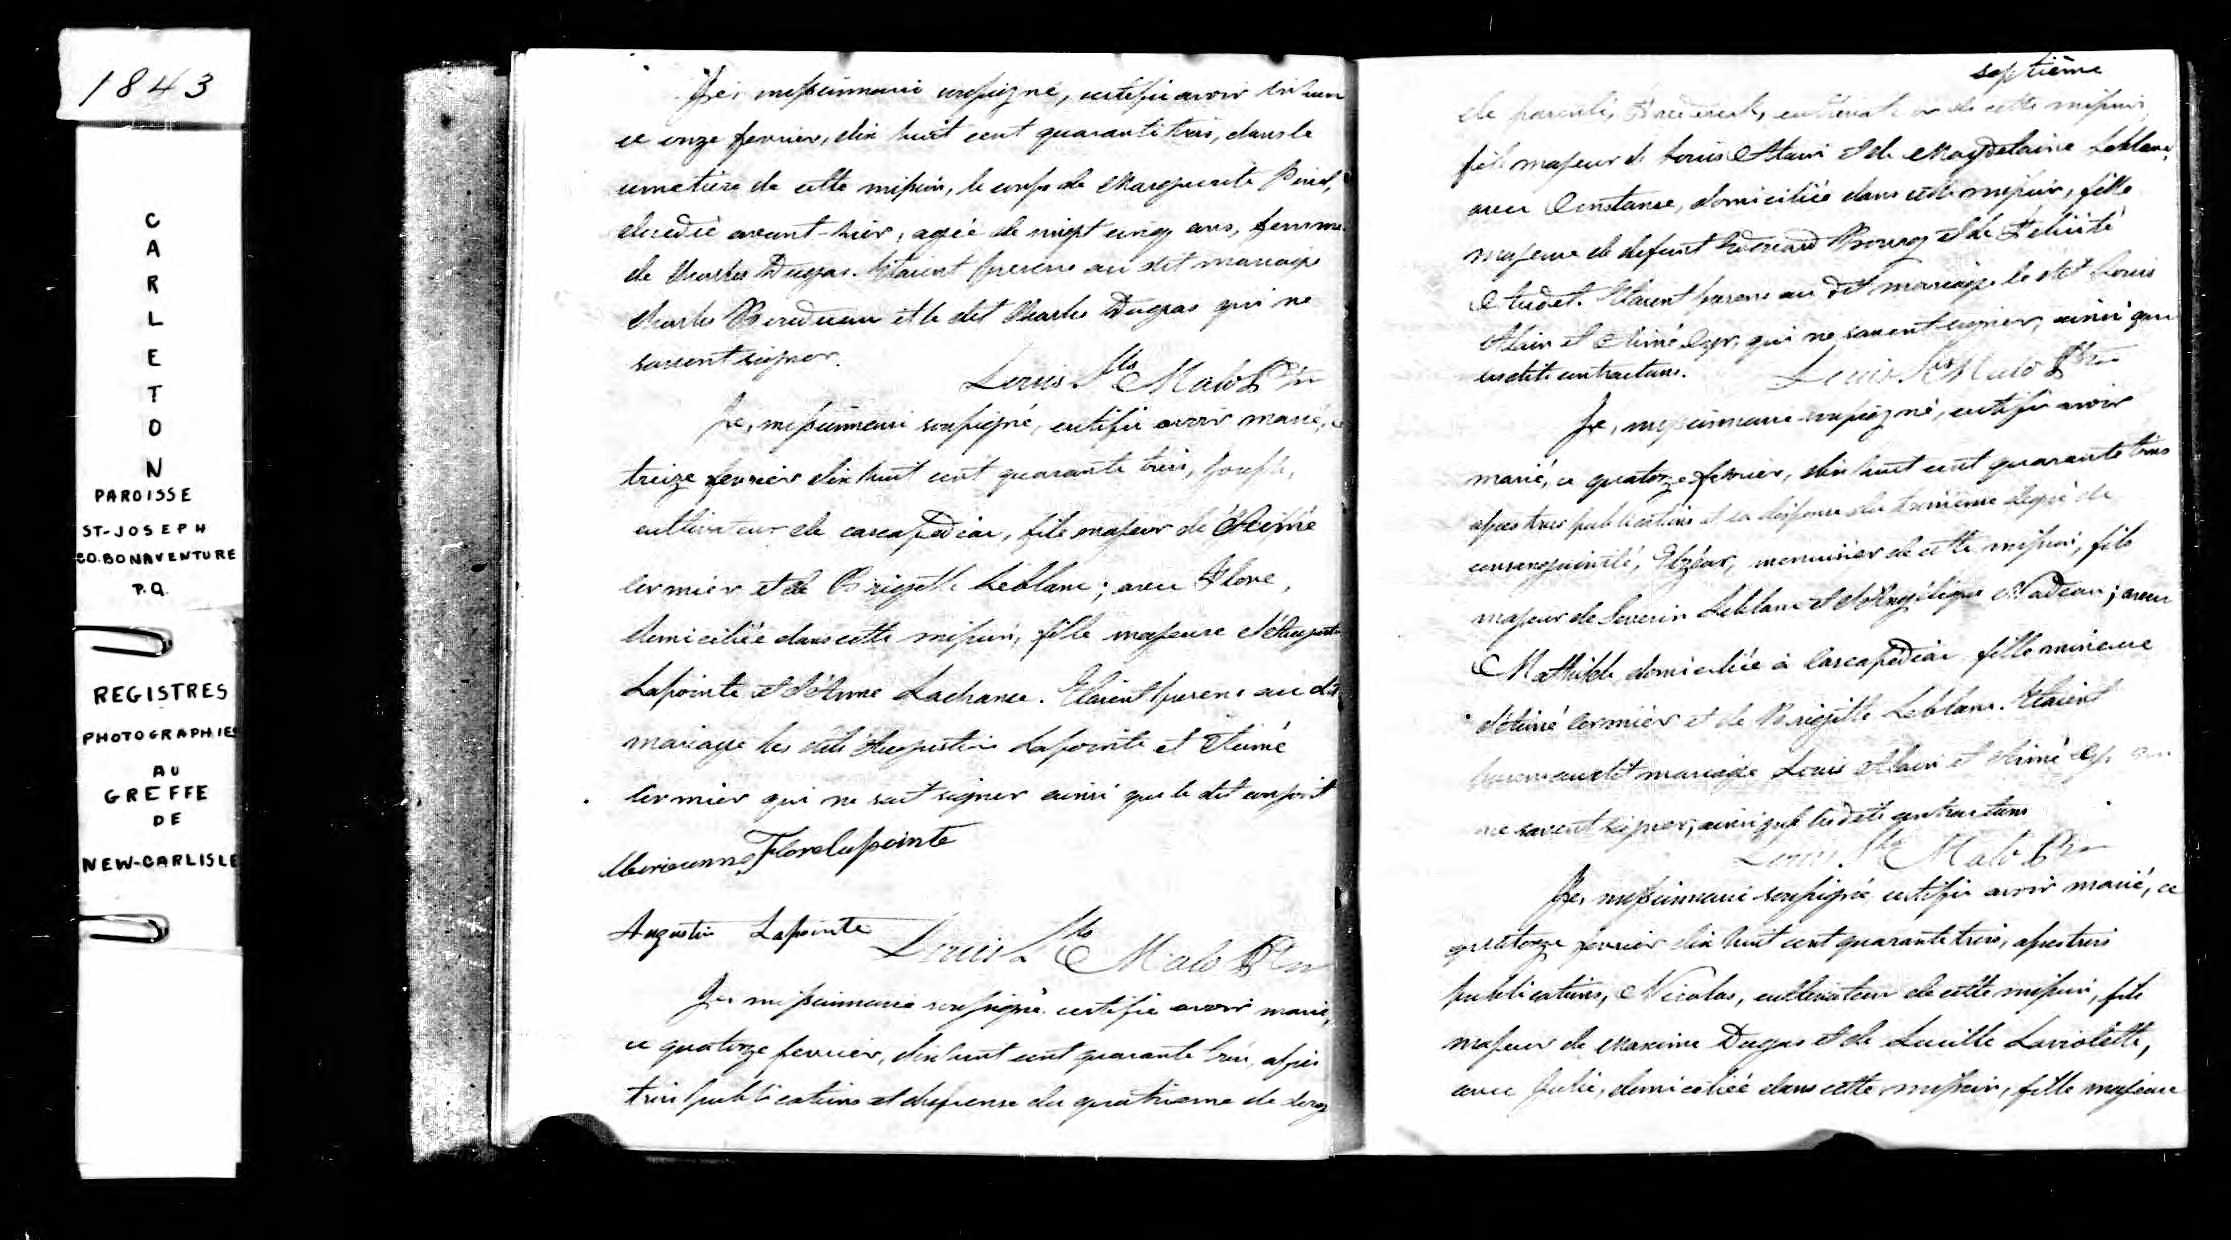 1843
CARLETON
PAROISSE
ST-JOSEPH
CO. BONAVENTURE
P.Q.
REGISTRES
PHOTOGRAPHIES
AU
GREFFE
DE
NEW-CARLISLE
Je, missionnaire soussigné, certifie avoir inhumé
ce onze fevrier, dix huit cent quarante trois, dans le
cimetière de cette mission, le corps de Marguerite
décédée avant-hier, agée de vingt cinq ans, femme
de Charles Dugas. Etaient presens au dit mariage
Charles et le dit Charles Dugas qui ne
savent signer.
Louis Sts Malo Ptre
Je, missionnaire soussigné, certifie avoir marié, ce
treize fevrier dix huit cent quarante trois, Joseph,
cultivateur de cascapediac, fils majeur d'Aimé
Cormier et de Brigitte Leblanc; avec Flore,
domiciliée dans cette mission, fille majeure d'Augustin
Lapointe et d'Anne Lachance. Etaient presens au dit
mariage les dits Augustin Lapointe et Aimé
Cormier qui ne sait signer ainsi que le dit conjoint
Flore lapointe
Augustin Lapointe Louis Sts Malo Ptre
Je, missionnaire soussigné certifie avoir marié,
ce quatorze fevrier, dix huit cent quarante trois, après
trois publications et dispense du quatrieme de degré
septième
de parenté, cultivateur de cette mission,
fils majeur de Louis Alain et de Magdelaine Leblanc,
avec Constance, domiciliée dans cette mission, fille
majeure de defunt Edouard Bourg et de Félicité
Audet. Etaient presens au dit mariage le dit Louis
Alain et Aimé Cyr, qui ne savent signer, ainsi que
les dits contractans. Louis Sts Malo Ptre
Je, missionnaire soussigné, certifie avoir
marié, ce quatorze fevrier, dix huit cent quarante trois
apres trois publications et la dispense du troisième degré de
consanguinité, Elzéar, menuisier de cette mission, fils
majeur de Severin Leblanc et d'Angélique Nadeau; avec
Mathilde, domiciliée à Cascapediac fille mineure
d'Aimé Cormier et de Brigitte Leblanc. Etaient
presens au dit mariage Louis Alain et Aimé Cyr qui
ne savent signer, ainsi que les dits contractans
Louis Sts Malo Ptre
Je, missionnaire soussigné certifie avoir marié, ce
quatorze fevrier dix huit cent quarante trois, apres trois
publications, Nicolas, cultivateur de cette mission, fils
majeur de Maxime Dugas et de Lucille Laviolette,
avec Julie, domiciliée dans cette mission, fille majeure